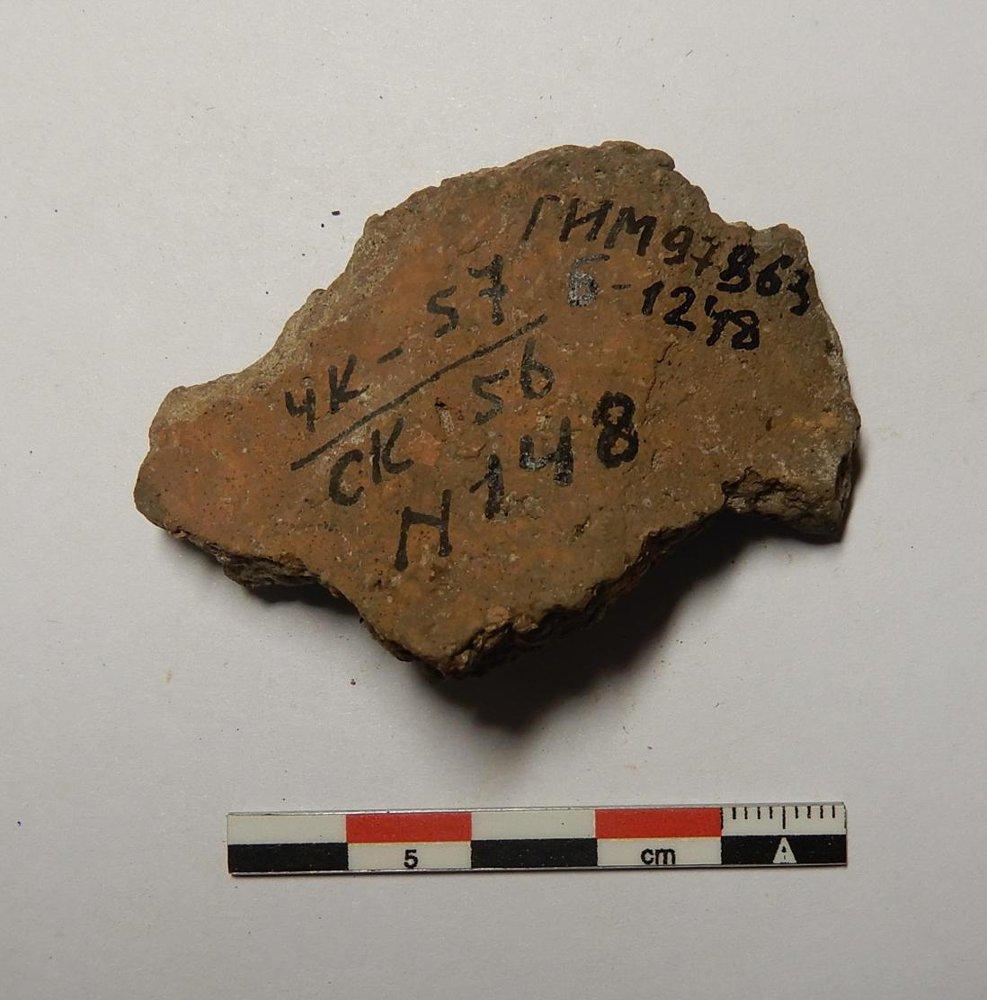 ГИМ 97963
Б-1248
ЧК-57
СК 56
N 148
5 cm